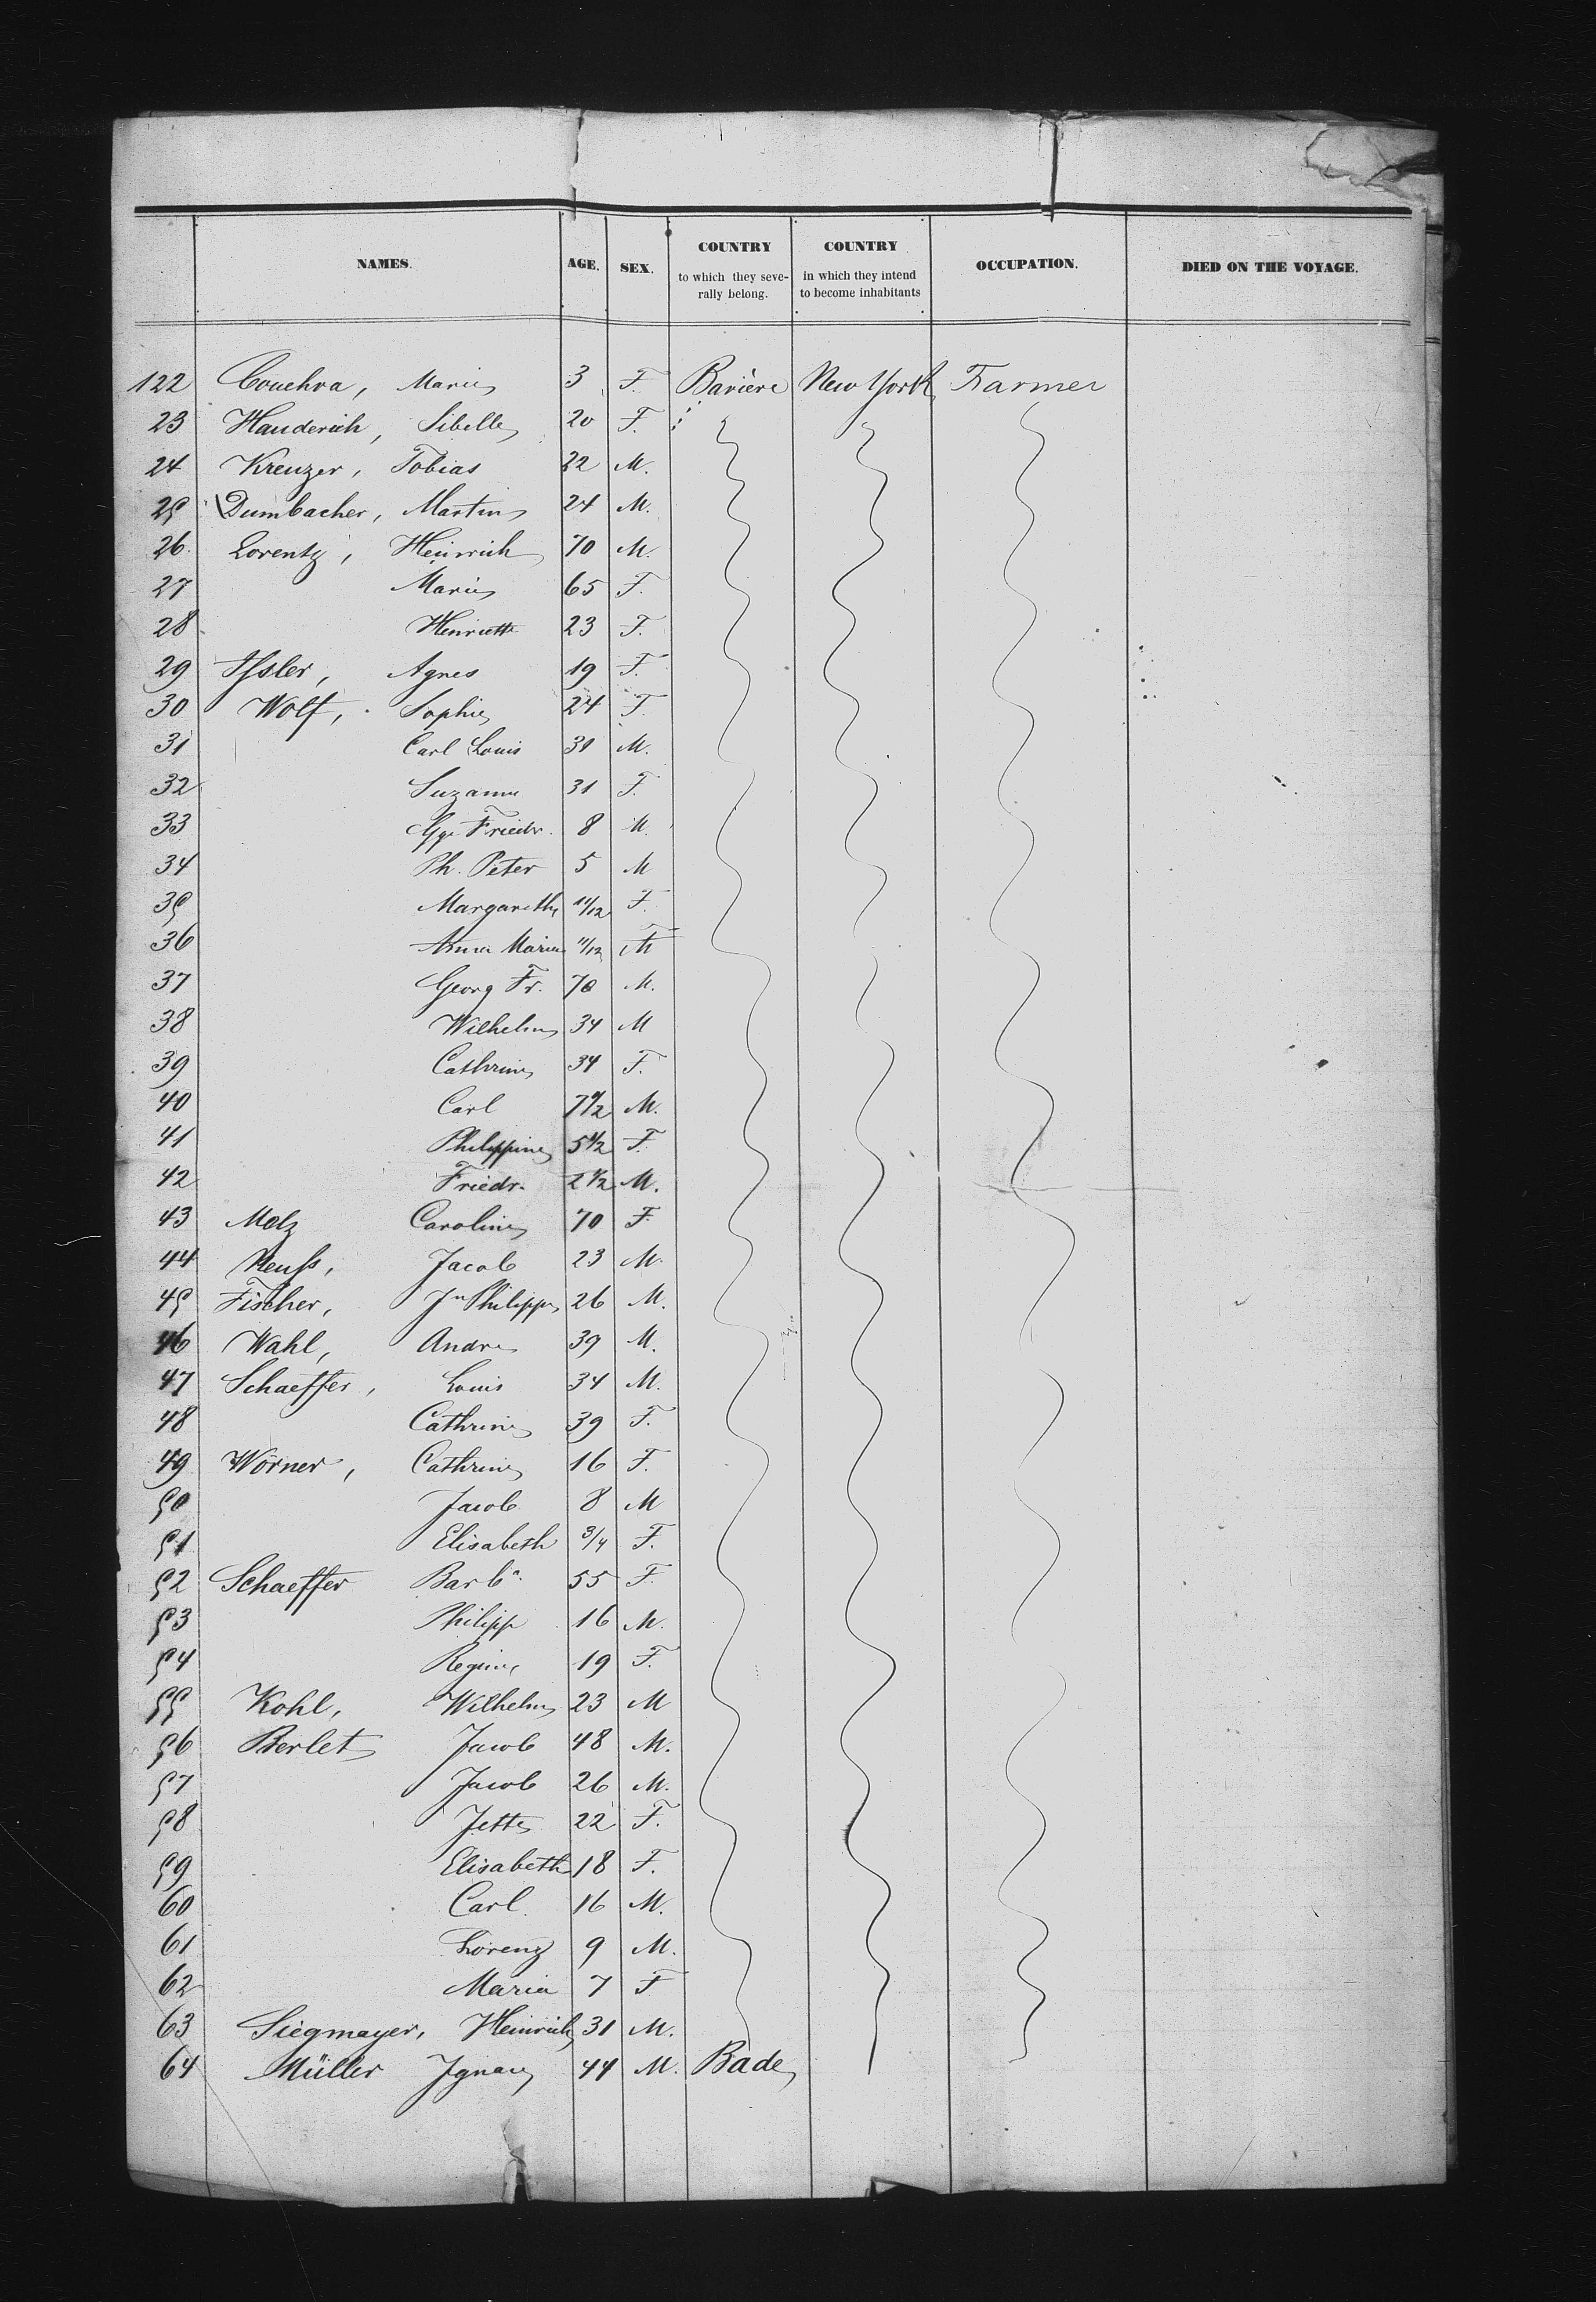 NAMES. AGE. SEX. COUNTRY to which they seve-rally belong. COUNTRY in which they intend to become inhabitants OCCUPATION. DIED ON THE VOYAGE.
122 Couchra, Marie 3 F. Bavière New York Farmer
23 Hauderich, Sibelle 20 F.
24 Kreuzer, Tobias 22 M.
25 Dumbacher, Martin 24 M.
26. Lorentz, Heinrich 70 M.
27 Marie 65 F.
28 Henriette 23 F.
29 Issler, Agnes 19 F.
30 Wolf, Sophie 24 F.
31 Carl Louis 31 M.
32 Suzanne 31 F.
33 Friedr. 8 M.
34 Ph. Peter 5 M
35 Margarethe 11/12 F.
36 Anna Maria 11/12 F
37 Georg Fr. 70 M.
38 Wilhelm 34 M
39 Cathrine 34 F.
40 Carl 7 1/2 M.
41 Philippine 5 1/2 F.
42 Friedr. 2 1/2 M.
43 Molz Caroline 70 F.
44 Neuss, Jacob 23 M.
45 Fischer, Jn Philipp 26 M.
46 Wahl, Andre 39 M.
47 Schaeffer, Louis 34 M.
48 Cathrine 39 F.
49 Wörner, Cathrine 16 F.
50 Jacob 8 M
51 Elisabeth 3/4 F.
52 Schaeffer Barba. 55 F.
53 Philipp 16 M.
54 Regine 19 F.
55 Kohl, Wilhelm 23 M
56 Berlet Jacob 48 M.
57 Jacob 26 M.
58 Jette 22 F.
59 Elisabeth 18 F.
60 Carl. 16 M.
61 Lorenz 9 M.
62 Maria 7 F
63 Siegmayer, Heinrich 31 M.
64 Müller Ignaz 44 M. Bade